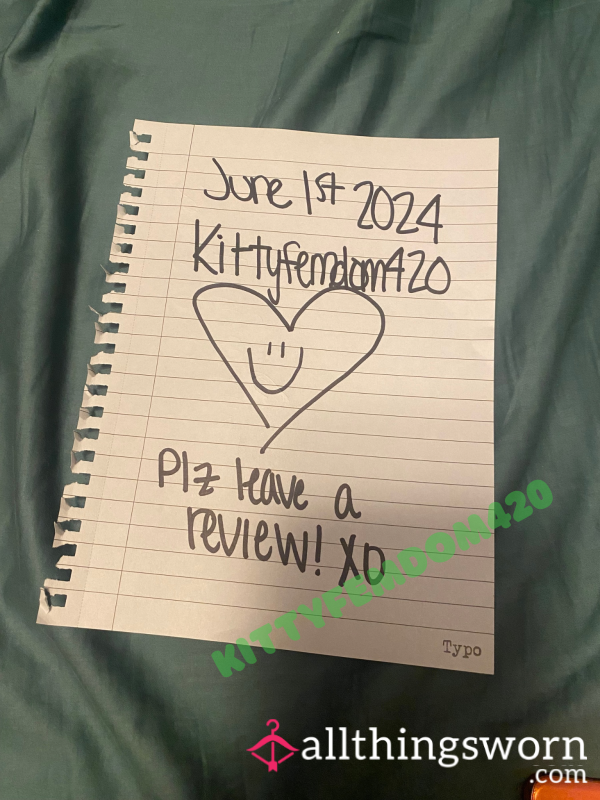 June 1st 2024
Kittyfemdom420
Plz leave a
review! XO
KITTYFEMDOM420
Typo
allthingsworn
.com